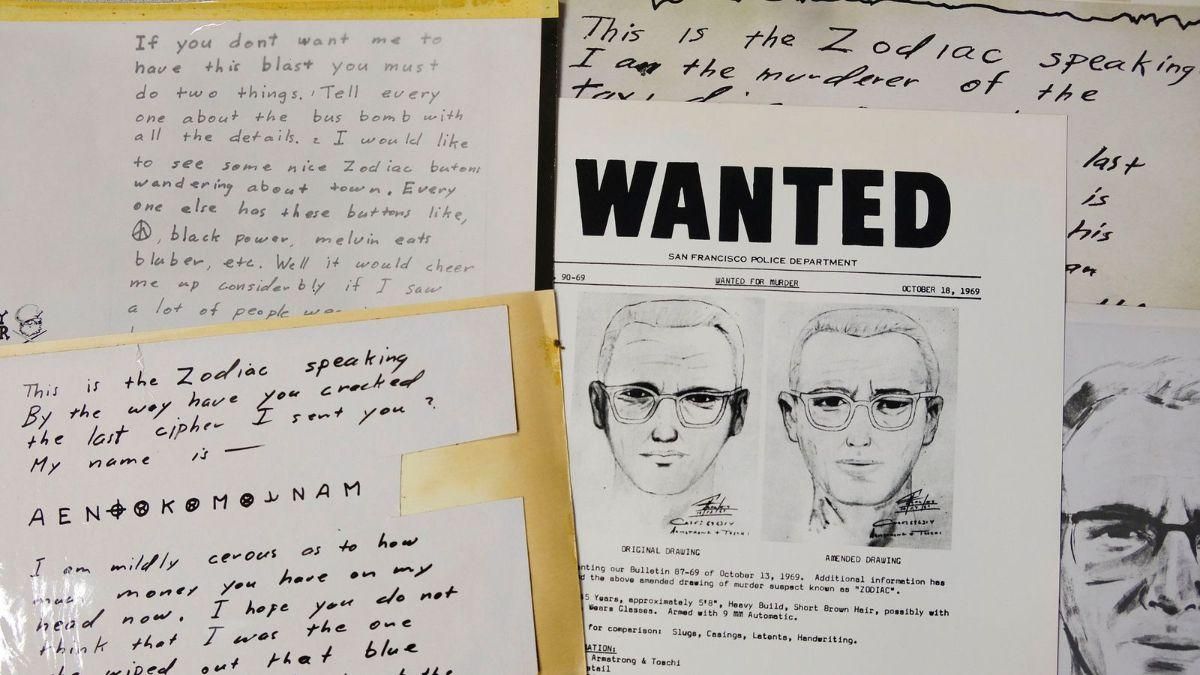 If you dont want me to
have this blast you must
do two things. Tell every
one about the bus bomb with
all the details. 2 I would like
to see some nice Zodiac butons
wandering about town. Every
one else has these buttons like,
☮, black power, melvin eats
bluber, etc. Well it would cheer
me up considerbly if I saw
a lot of people
This is the Zodiac speaking
By the way have you cracked
the last cipher I sent you?
My name is —
AEN⌖⊗K⊗M⊗NAM
I am mildly cerous as to how
much money you have on my
head now. I hope you do not
think that I was the one
wiped out that blue
the
This is the Zodiac speaking
I am the murderer of the
last
is
his
an
WANTED
SAN FRANCISCO POLICE DEPARTMENT
90-69 WANTED FOR MURDER OCTOBER 18, 1969
ORIGINAL DRAWING AMENDED DRAWING
our Bulletin 87-69 of October 13, 1969. Additional information has
the above amended drawing of murder suspect known as "ZODIAC".
Years, approximately 5'8", Heavy Build, Short Brown Hair, possibly with
Wears Glasses. Armed with 9 MM Automatic.
for comparison: Slugs, Casings, Latents, Handwriting.
Armstrong & Toschi